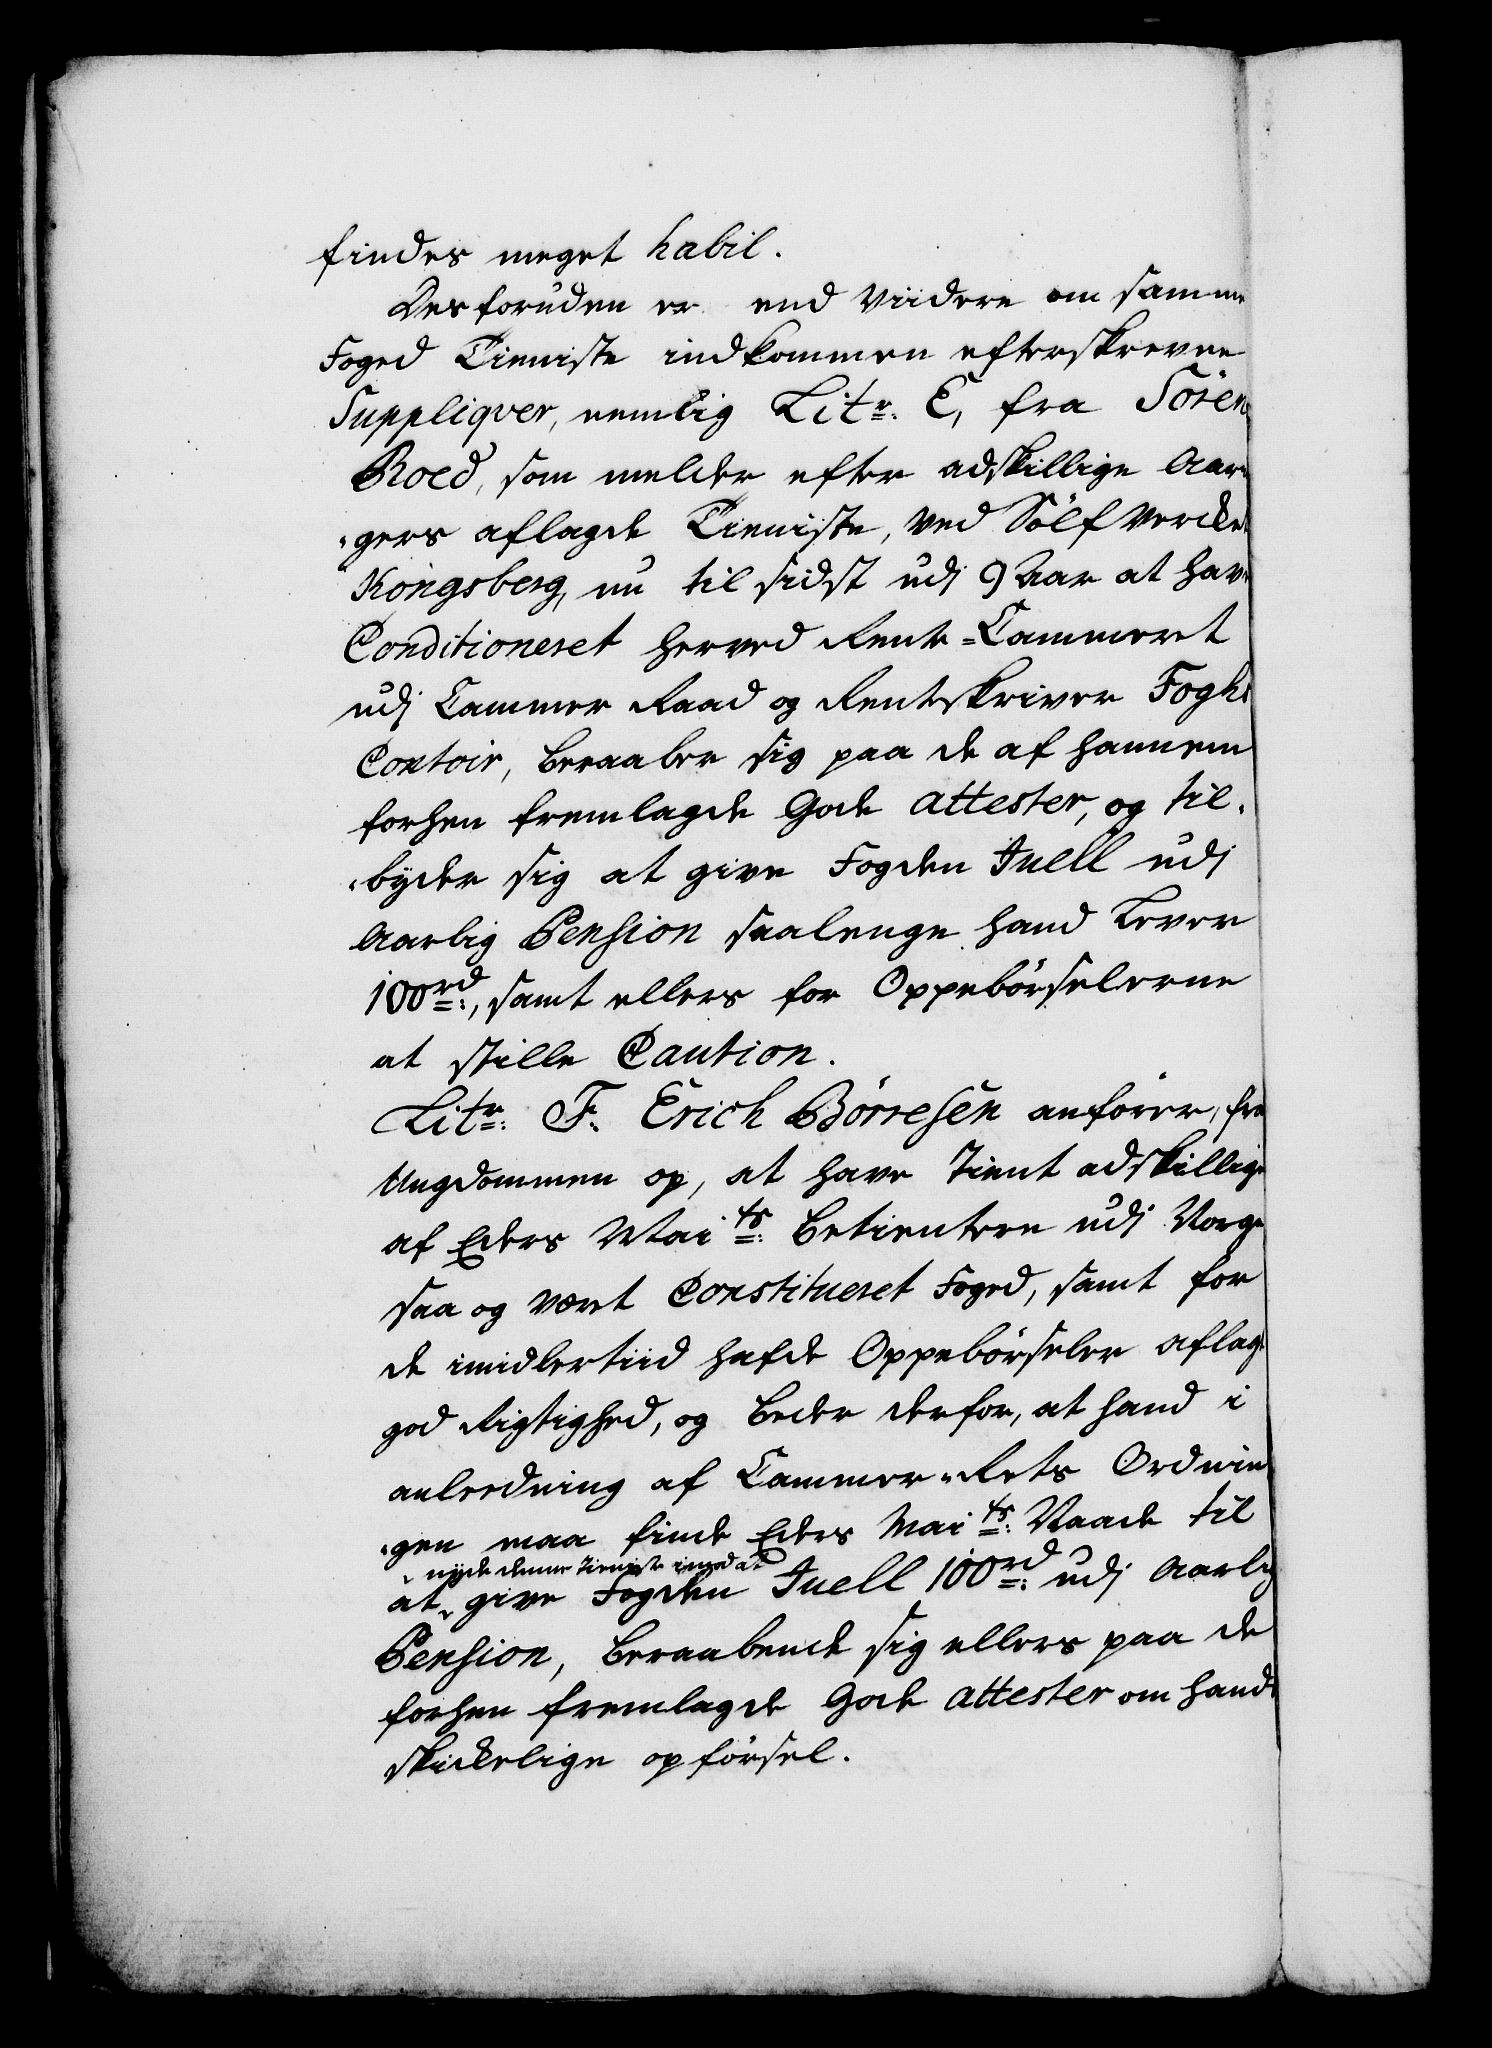 findes meget habil.
Desforuden er end viidere om samme
Foged Tieniste indkommen efterskrevne
Suppliqver, nemlig Litr: E, fra Sören
Roed, som melder efter adskillige Aarin
„gers aflagde Tieniste, ved Sölf Vercket
Kongsberg, nu til sidst udj 9 Aar at have
Conditioneret herved Rente=Cammeret
udj Cammer Raad og Rentskriver Foghs
Contoir, beraaber sig paa de af hannem
forhen fremlagde Gode attester, og til„
„byder sig at give Fogden Juell udj
Aarlig Pension saalenge hand Lever
100rd:, samt ellers for Oppebörselerne
at stille Caution.
Litr: F. Erich Börresen anförer, fra
Ungdommen op, at have Tient adskillige
af Eders Maits: betientere udj Norge
saa og været Constitueret Foged, samt for
de imidlertiid hafde Oppebörseler aflagt
god Rigtighed, og beder derfor, at hand i
anleedning af Cammer-Rets Ordnin
„gen maa finde Eders Maits: Naade til
nyde denne Tieniste imod at
at give Fogden Juell 100rd: udj Aarlig
Pension, beraabende sig ellers paa de
forhen fremlagde Gode attester om hands
skickelige opförsel.